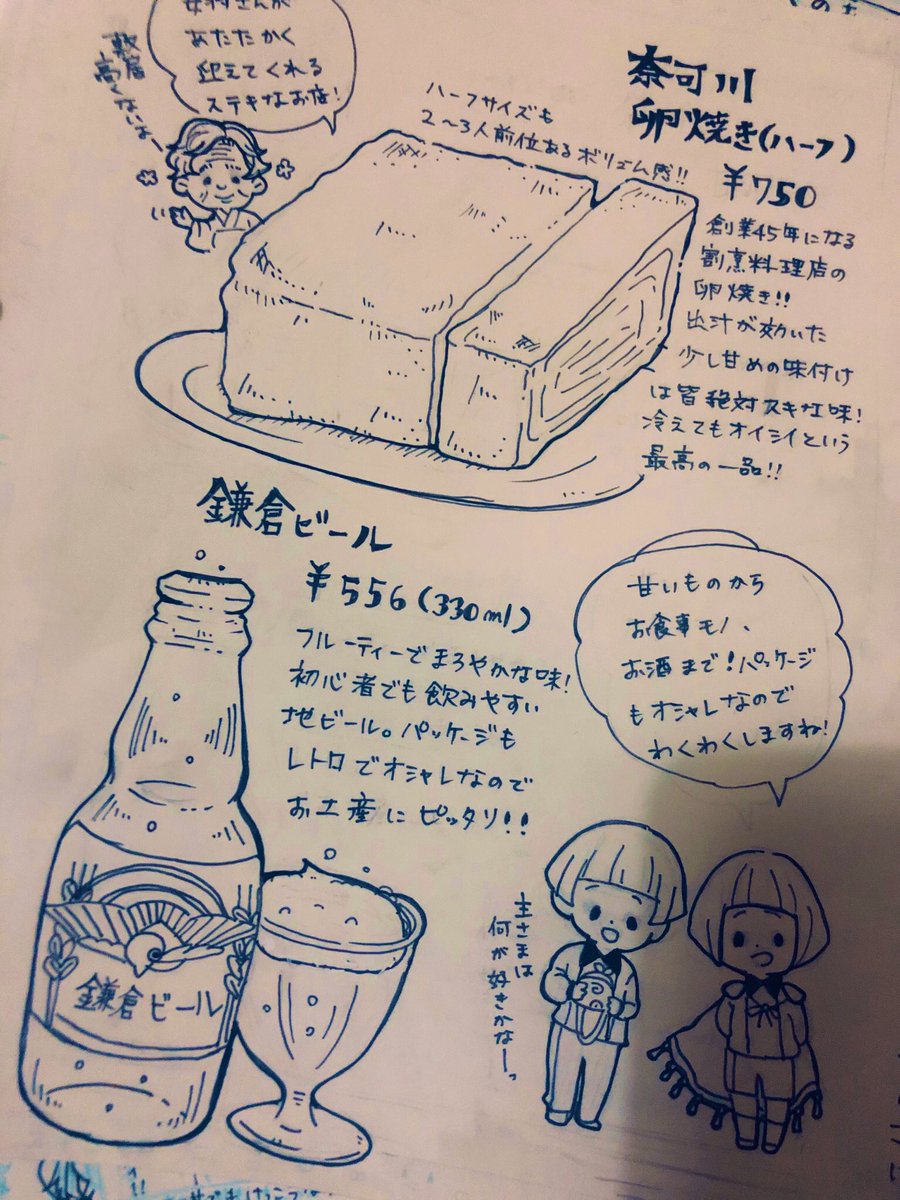 女将さんが
あたたかく
迎えてくれる
ステキなお店!
敷居
高くないよー
ハーフサイズも
2〜3人前位あるボリューム感!!
奈可川
卵焼き(ハーフ)
¥750
創業45年になる
割烹料理店の
卵焼き!!
出汁が効いた
少し甘めの味付け
は皆絶対スキな味!
冷えてもオイシイという
最高の一品!!
鎌倉ビール
¥556(330ml)
フルーティーでまろやかな味!
初心者でも飲みやすい
地ビール。パッケージも
レトロでオシャレなので
お土産にピッタリ!!
鎌倉ビール
甘いものから
お食事モノ、
お酒まで!パッケージ
もオシャレなので
わくわくしますね!
主さまは
何が好きかなーっ